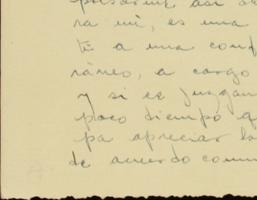 ra mí, es una
té a una conf
ráneo, a cargo
y si es juzgan
poco tiempo q
pa apreciar la
de acuerdo comu